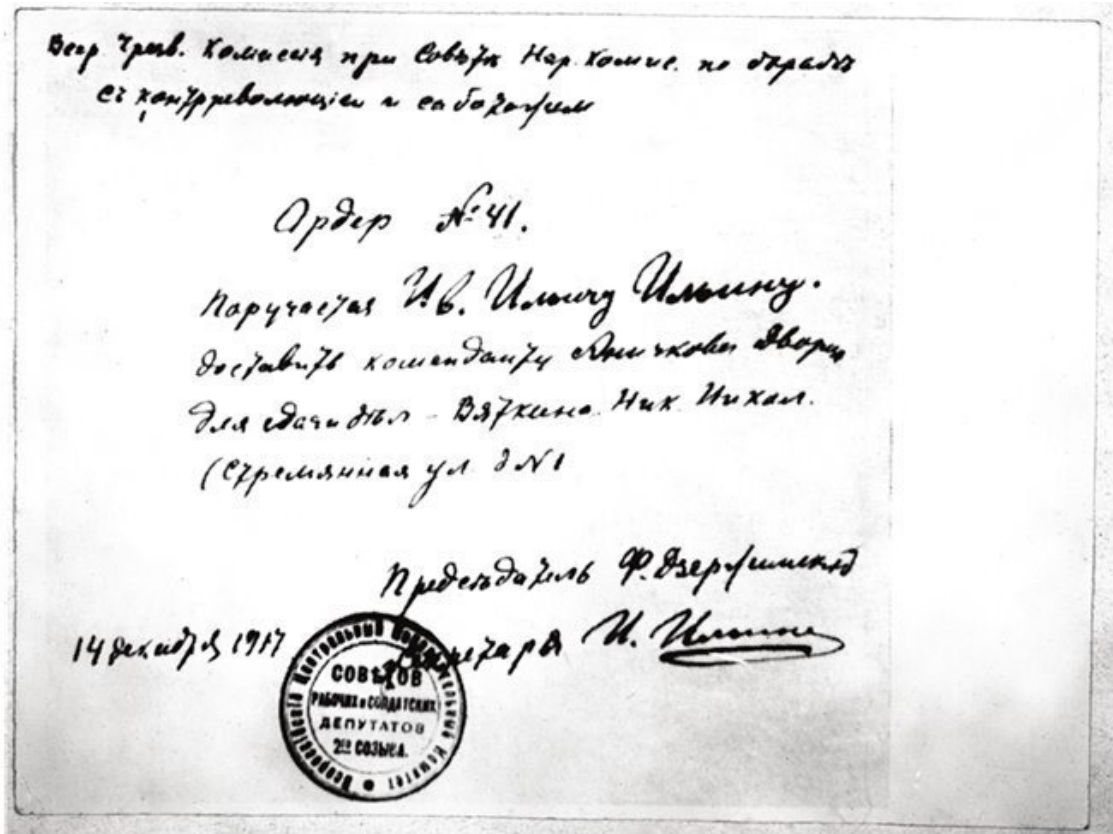 Всер. Чрезв. Комиссія при Совѣтѣ Нар. Комис. по борьбѣ
съ контрреволюціей и саботажем
Ордер № 41.
Поручается Ив. Ильичу Ильину.
доставить коменданту Аничкова Дворца
для сдачи дѣл - Вяткина Ник Никол.
(Стремянная ул. д N1
Предсѣдатель Ф. Дзержинскій
14 декабря 1917
Секретарь И. Ильин
Всероссійскій Центральный Исполнительный Комитет
СОВѢТОВ
РАБОЧИХ и СОЛДАТСКИХ
ДЕПУТАТОВ
2го СОЗЫВА.